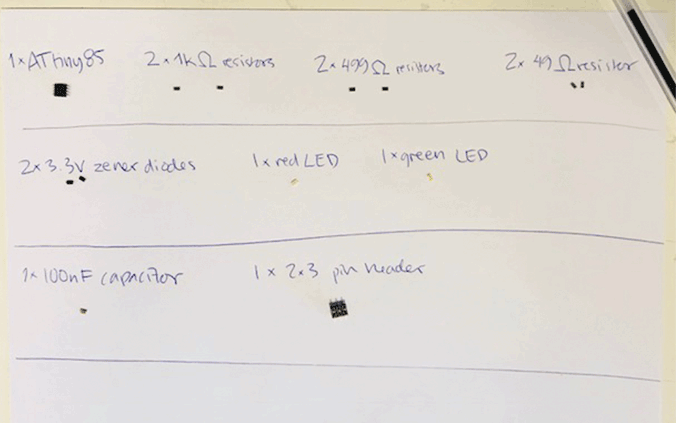 1×ATtiny85 2×1kΩ resistors 2×499Ω resistors 2×49Ω resistor
2×3.3V zener diodes 1×red LED 1×green LED
1×100nF capacitor 1×2×3 pin header